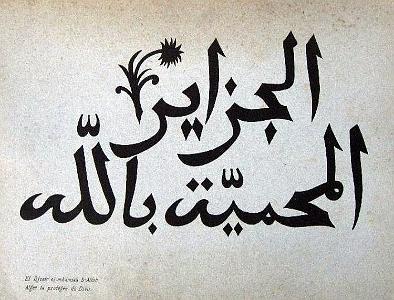 الجزاير
المحميّة باللّه
El Djezair el-mahmiya b-Allah
Alger la protégée de Dieu.